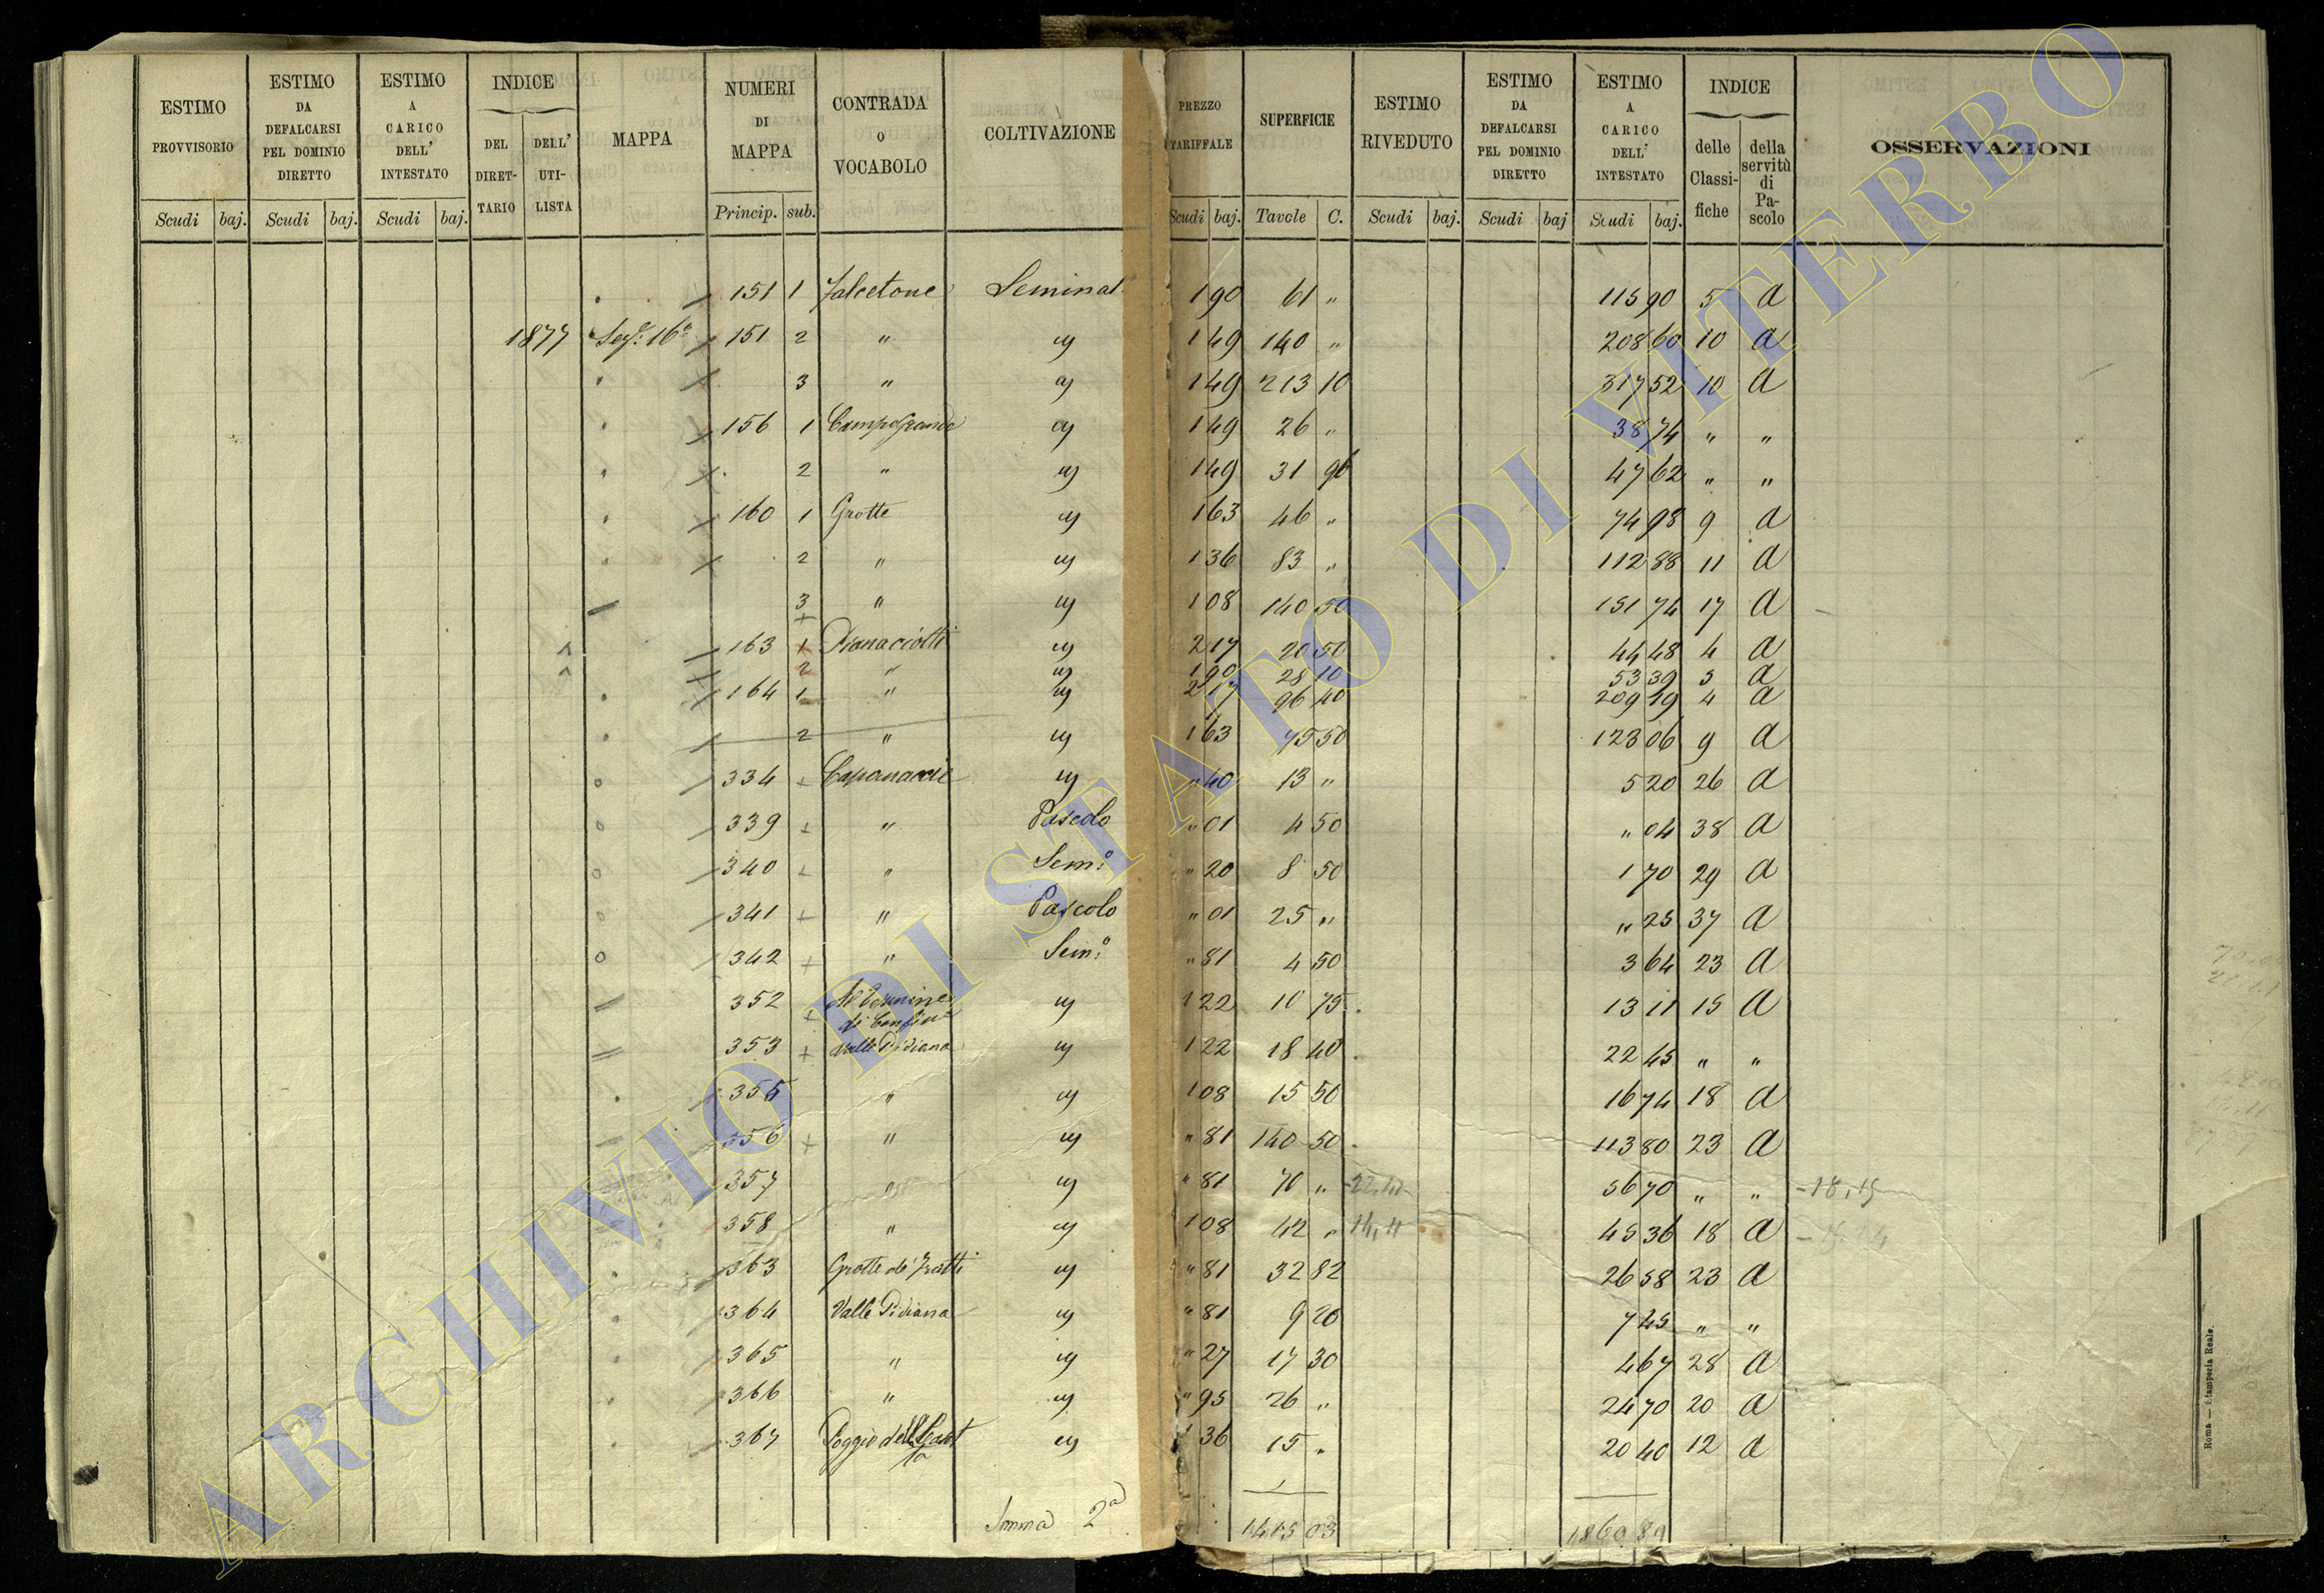 ESTIMO PROVVISORIO | ESTIMO DA DEFALCARSI PEL DOMINIO DIRETTO | ESTIMO A CARICO DELL' INTESTATO | INDICE DEL DIRETTARIO | DELL' UTILISTA | MAPPA | NUMERI DI MAPPA | CONTRADA O VOCABOLO | COLTIVAZIONE | PREZZO TARIFFALE | SUPERFICIE | ESTIMO RIVEDUTO | ESTIMO DA DEFALCARSI PEL DOMINIO DIRETTO | ESTIMO A CARICO DELL' INTESTATO | INDICE delle Classifiche | della servitù di Pascolo | OSSERVAZIONI
Scudi baj. Scudi baj. Scudi baj. Princip. sub. Scudi baj. Tavole C. Scudi baj. Scudi baj Scudi baj.
151 1 Falcetone Seminat. 1 90 61 " 115 90 5 a
1877 Sez. 16a 151 2 " " 1 49 140 " 208 60 10 a
" 3 " " 1 49 213 10 317 52 10 a
156 1 Campogrande " 1 49 26 " 38 74 " "
2 " " 1 49 31 96 47 62 " "
160 1 Grotte " 1 63 46 " 74 98 9 a
2 " " 1 36 83 " 112 88 11 a
3 " " 1 08 140 50 151 74 17 a
163 1 " 2 17 20 50 44 48 4 a
2 " " 1 90 28 10 53 39 5 a
164 1 " " 2 17 96 40 209 19 4 a
2 " " 1 63 75 50 123 06 9 a
334 + Capanaccie " " 40 13 " 5 20 26 a
339 + " Pascolo " 01 4 50 " 04 38 a
340 + " Sem.o " 20 8 50 1 70 29 a
341 + " Pascolo " 01 25 " " 25 37 a
342 + " Sem.o " 81 4 50 3 64 23 a
352 + di " 1 22 10 75 13 11 15 a
353 + Valle Pidiana " 1 22 18 40 22 45 " "
355 " " 1 08 15 50 16 74 18 a
356 + " " " 81 140 50 113 80 23 a
357 " " " 81 70 " 56 70 " " -18,15
358 " " 1 08 42 " 14,11 45 36 18 a
363 Grotte de' Fratti " " 81 32 82 26 58 23 a
364 Valle Pidiana " " 81 9 20 7 45 " "
365 " " " 27 17 30 4 67 28 a
366 " " " 95 26 " 24 70 20 a
367 Poggio della " 1 36 15 " 20 40 12 a
Somma 2a 1415 03 1860 89
Roma — Stamperia Reale.
ARCHIVIO DI STATO DI VITERBO